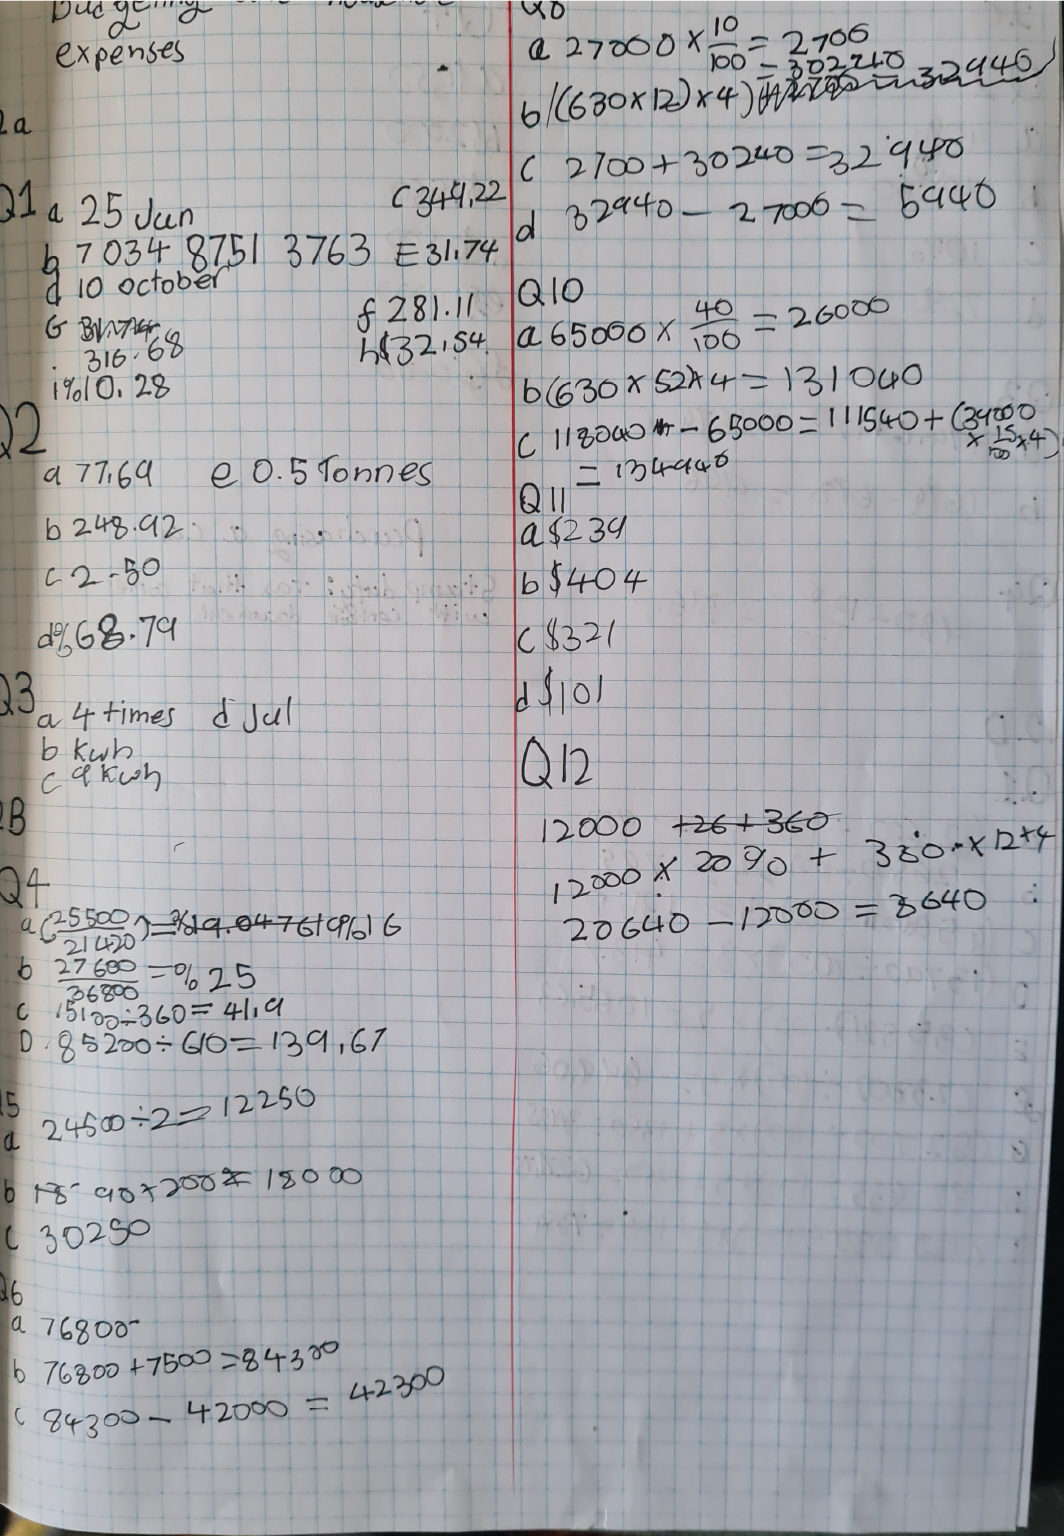 expenses
2a
Q1 a 25 Jun
C 349.22
b 7034 8751 3763
E 31.74
d 10 october
f 281.11
G
316.68
h $32.54
i %10.28
Q2
a 77.69
e 0.5 Tonnes
b 248.92
c 2.50
d %68.79
Q3
a 4 times
d Jul
b kwh
c 9 kwh
2B
Q4
a (25500/21420) = %19.047619 %16
b 27600/36800 = %25
c 15100÷360 = 41.9
D 85200 ÷ 610 = 139.67
Q5
a 24500÷2 = 12250
b 18 90×200 = 18000
c 30250
Q6
a 76800
b 76800+7500=84300
c 84300 - 42000 = 42300
Q8
a 27000 × 10/100 = 2700
= 302240
b ((630×12)×4) = 32940
c 2700+30240=32940
d 32940 - 27000 = 5940
Q10
a 65000 × 40/100 = 26000
b (630 × 52 × 4 = 131040
c 118040 - 65000 = 111540 + (39000
× 15/100 × 4)
= 134940
Q11
a $239
b $404
c $321
d $101
Q12
12000 +26+360
12000 × 20% + 380 × 12×4
20640 - 12000 = 8640